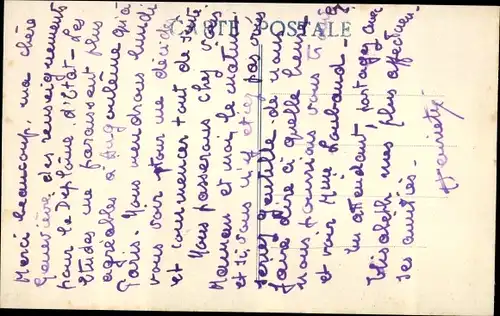 CARTE POSTALE
Merci beaucoup, ma chère
Geneviève, des renseignements
pour le Diplôme d'Etat - Les
Etudes me paraissent plus
agréables à Angoulême qu'à
Paris. Nous viendrons lundi
vous voir pour me décider
et commencer tout de suite.
Nous passerons chez vous
Maman et moi le matin
et si vous n'y êtes pas vous
seriez gentille de nous
faire dire à quelle heure
nous pourrions vous trouver
et voir Mme
En attendant, partagez avec
Elisabeth mes plus affectueu-
ses amitiés -
Henriette